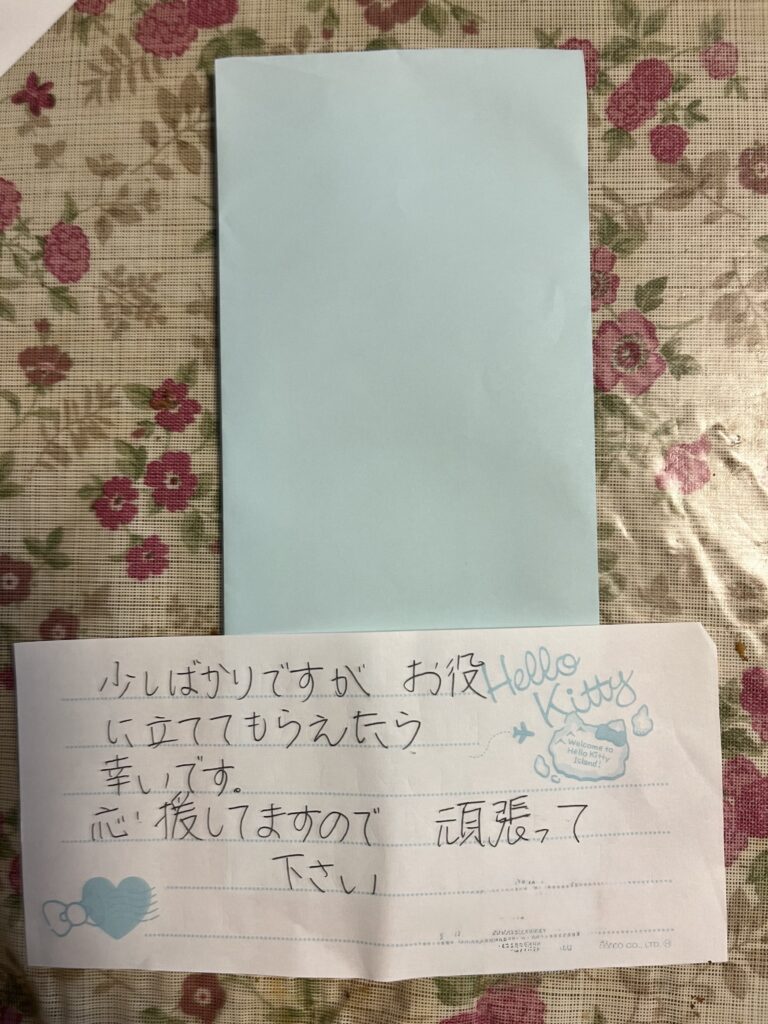 少しばかりですが お役
に立ててもらえたら
幸いです。
応援してますので 頑張って
下さい
Hello
Kitty
Welcome to
Hello Kitty
Island!
CO., LTD.